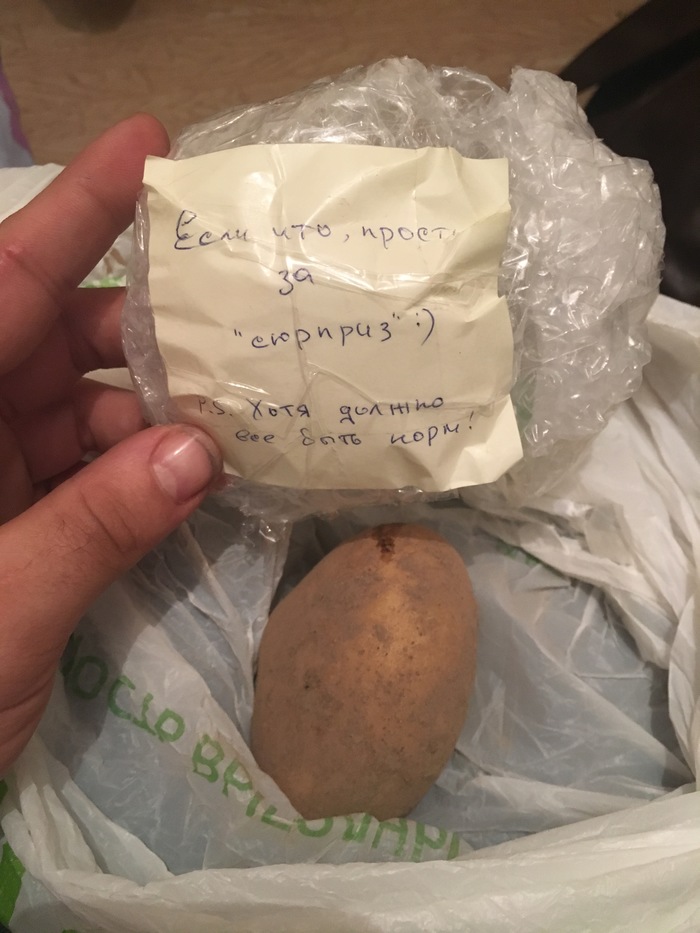 Если что, прости
за
"сюрприз" :)
P.S. Хотя должно
все быть норм!